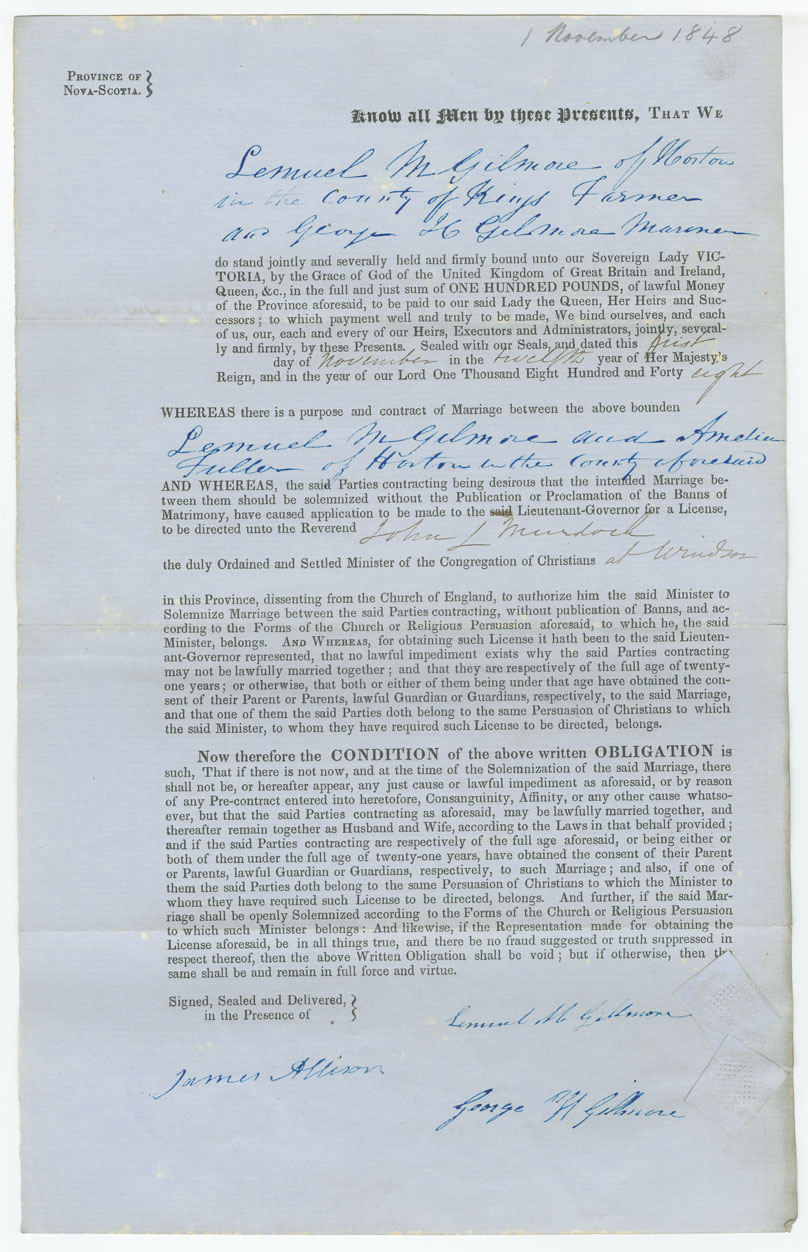 1 November 1848
PROVINCE OF
NOVA-SCOTIA.
Know all Men by these Presents, THAT WE
Lemuel M Gilmore of Horton
in the County of Kings Farmer
and George H Gilmore Mariner
do stand jointly and severally held and firmly bound unto our Sovereign Lady VIC-
TORIA, by the Grace of God of the United Kingdom of Great Britain and Ireland,
Queen, &c., in the full and just sum of ONE HUNDRED POUNDS, of lawful Money
of the Province aforesaid, to be paid to our said Lady the Queen, Her Heirs and Suc-
cessors; to which payment well and truly to be made, We bind ourselves, and each
of us, our, each and every of our Heirs, Executors and Administrators, jointly, several-
ly and firmly, by these Presents. Sealed with our Seals, and dated this first
day of November in the twelfth year of Her Majesty's
Reign, and in the year of our Lord One Thousand Eight Hundred and Forty eight
WHEREAS there is a purpose and contract of Marriage between the above bounden
Lemuel M Gilmore and Amelia
Fuller of Horton in the County aforesaid
AND WHEREAS, the said Parties contracting being desirous that the intended Marriage be-
tween them should be solemnized without the Publication or Proclamation of the Banns of
Matrimony, have caused application to be made to the said Lieutenant-Governor for a License,
to be directed unto the Reverend John L Murdoch
the duly Ordained and Settled Minister of the Congregation of Christians at Windsor
in this Province, dissenting from the Church of England, to authorize him the said Minister to
Solemnize Marriage between the said Parties contracting, without publication of Banns, and ac-
cording to the Forms of the Church or Religious Persuasion aforesaid, to which he, the said
Minister, belongs. AND WHEREAS, for obtaining such License it hath been to the said Lieuten-
ant-Governor represented, that no lawful impediment exists why the said Parties contracting
may not be lawfully married together; and that they are respectively of the full age of twenty-
one years; or otherwise, that both or either of them being under that age have obtained the con-
sent of their Parent or Parents, lawful Guardian or Guardians, respectively, to the said Marriage,
and that one of them the said Parties doth belong to the same Persuasion of Christians to which
the said Minister, to whom they have required such License to be directed, belongs.
Now therefore the CONDITION of the above written OBLIGATION is
such, That if there is not now, and at the time of the Solemnization of the said Marriage, there
shall not be, or hereafter appear, any just cause or lawful impediment as aforesaid, or by reason
of any Pre-contract entered into heretofore, Consanguinity, Affinity, or any other cause whatso-
ever, but that the said Parties contracting as aforesaid, may be lawfully married together, and
thereafter remain together as Husband and Wife, according to the Laws in that behalf provided;
and if the said Parties contracting are respectively of the full age aforesaid, or being either or
both of them under the full age of twenty-one years, have obtained the consent of their Parent
or Parents, lawful Guardian or Guardians, respectively, to such Marriage; and also, if one of
them the said Parties doth belong to the same Persuasion of Christians to which the Minister to
whom they have required such License to be directed, belongs. And further, if the said Mar-
riage shall be openly Solemnized according to the Forms of the Church or Religious Persuasion
to which such Minister belongs: And likewise, if the Representation made for obtaining the
License aforesaid, be in all things true, and there be no fraud suggested or truth suppressed in
respect thereof, then the above Written Obligation shall be void; but if otherwise, then the
same shall be and remain in full force and virtue.
Signed, Sealed and Delivered,
in the Presence of
Lemuel M Gillmore
James Allison
George H Gillmore